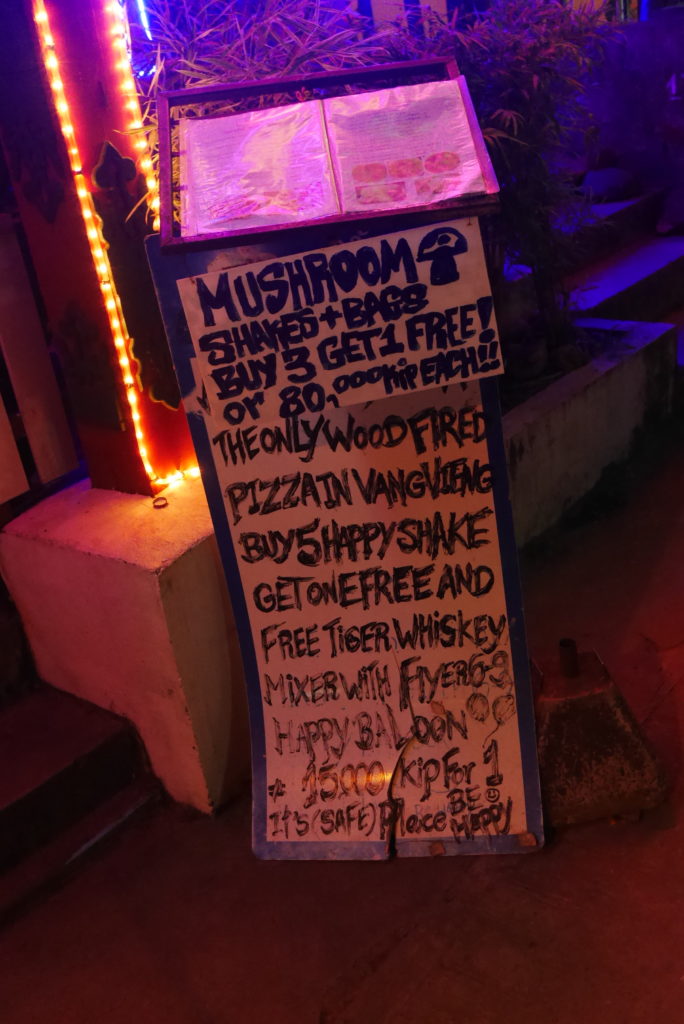 MUSHROOM
SHAKES + BAGS
BUY 3 GET 1 FREE!
or 80,000 KIP EACH!!
THE ONLY WOOD FIRED
PIZZA IN VANGVIENG
BUY 5 HAPPY SHAKE
GET ONE FREE AND
FREE TIGER WHISKEY
MIXER WITH FLYER 6-9
HAPPY BALOON
15.000 KIP For 1
It's (SAFE) Place BE HAPPY